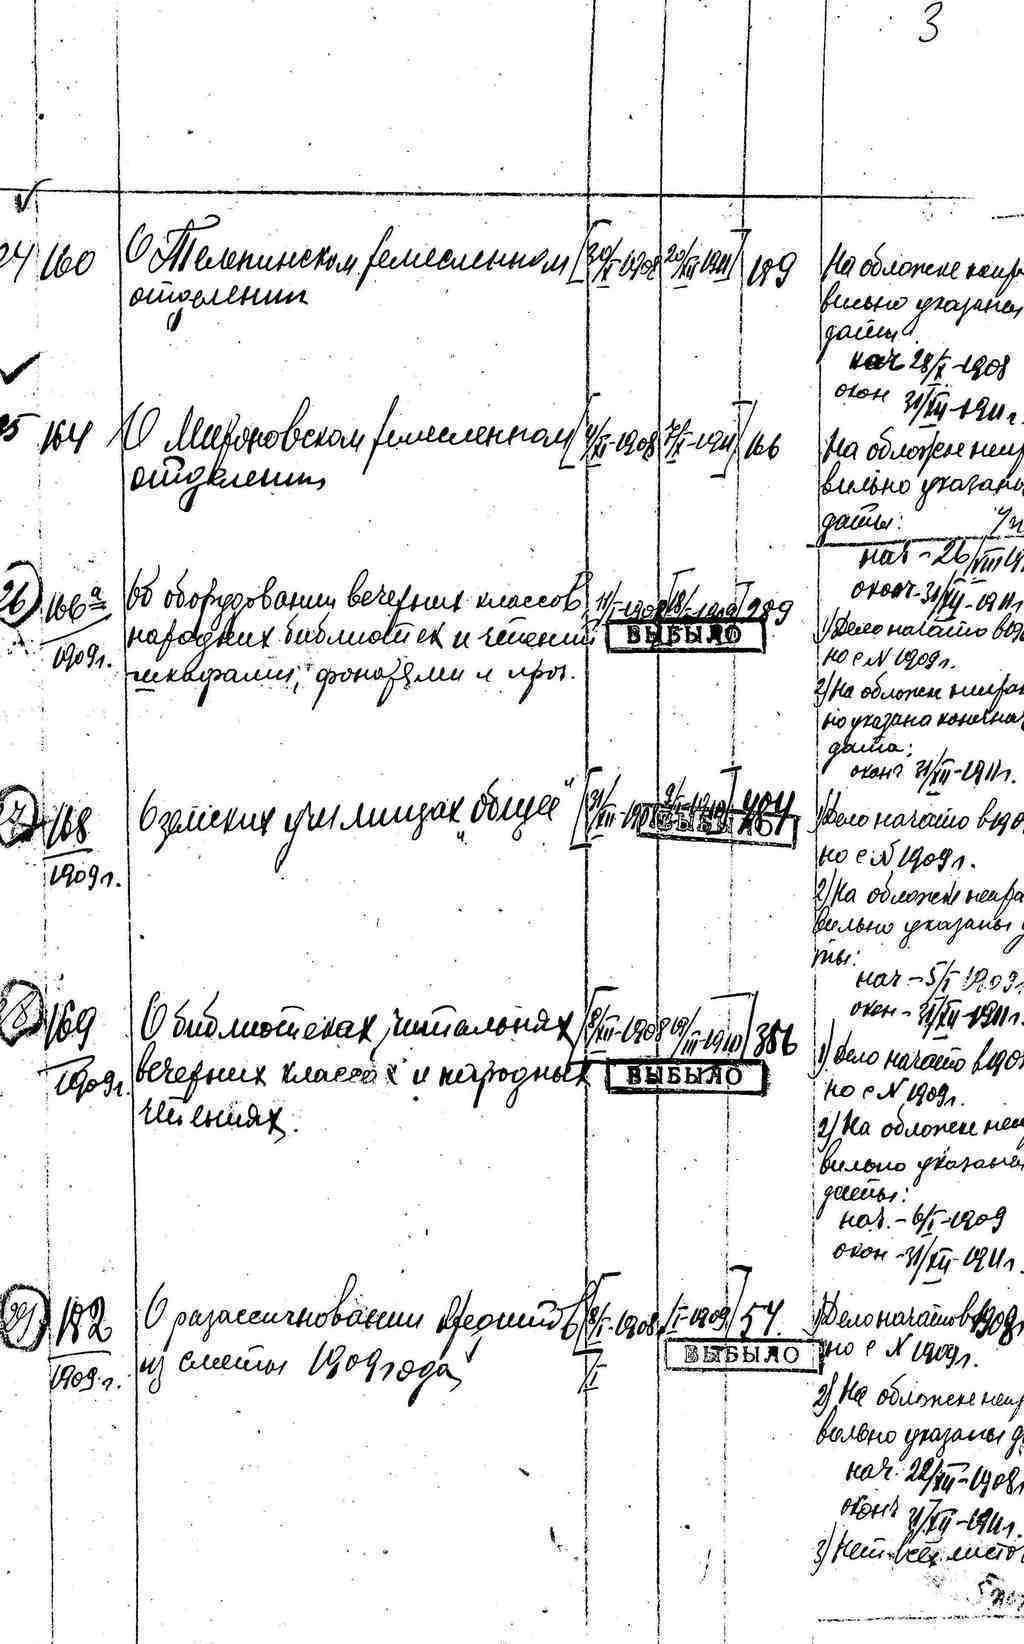 3
24 160 О Телепинском ремесленном [30/X-1908 20/XII-1911] 189
отделении
На обложке непра
вильно указаны
даты
нач 28/X-1908
окон 31/XII-1911г.
25 164 О Мироновском ремесленном [4/XI-1908 7/X-1911] 166
отделении
На обложке непра
вильно указаны
даты:
нач - 26/VIII
оконч - 31/XII-1911г.
26 166а 1909г. Об оборудовании вечерних классов 289
народных библиотек и чтений
шкафами, фонарями и проч.
ВЫБЫЛО
1) Дело начато в 190
но с N 1909г.
2) На обложке неправ
но указана конечная
дата:
оконч 31/XII-1911г.
27 168 1909г. О земских училищах „общее" 404
ВЫБЫЛО
1) Дело начато в 190
но с N 1909г.
2) На обложке непра
вильно указаны д
ты:
нач - 5/I 1909г
окон - 31/XII-1911г.
28 169 1909г. О библиотеках, читальнях, [8/XII-1908 19/III-1910] 356
вечерних классах и народных
чтениях.
ВЫБЫЛО
1) Дело начато в 190
но с N 1909г.
2) На обложке неп
вильно указаны
даты:
нач. - 6/I-1909
окон - 31/XII-1911г.
29 182 1909г. О разассигновании кредитов [8/I-1908 /I-1909] 54.
из сметы 1909 года
ВЫБЫЛО
1) Дело начато в 1908г
но с N 1909г.
2) На обложке непр
вильно указаны д
нач. 22/XII-1908г
оконч 31/XII-1911г.
3) Нет всех листо